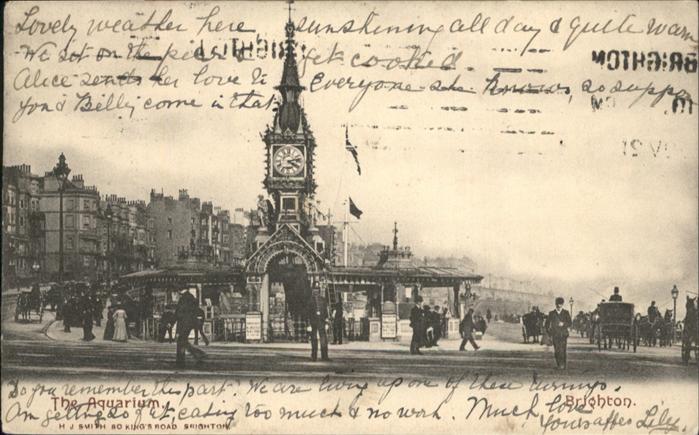 Lovely weather here sunshining all day & quite warm
We sit on the pier & get cooked.
Alice sends her love to everyone she knows, so suppose
you & Billy come in that
BRIGHTON
Do you remember this part? We are living up one of these turnings.
The Aquarium, Brighton.
Am getting so fat eating too much & no work. Much love
H J SMITH 80 KING'S ROAD BRIGHTON
Yours affec Lily.